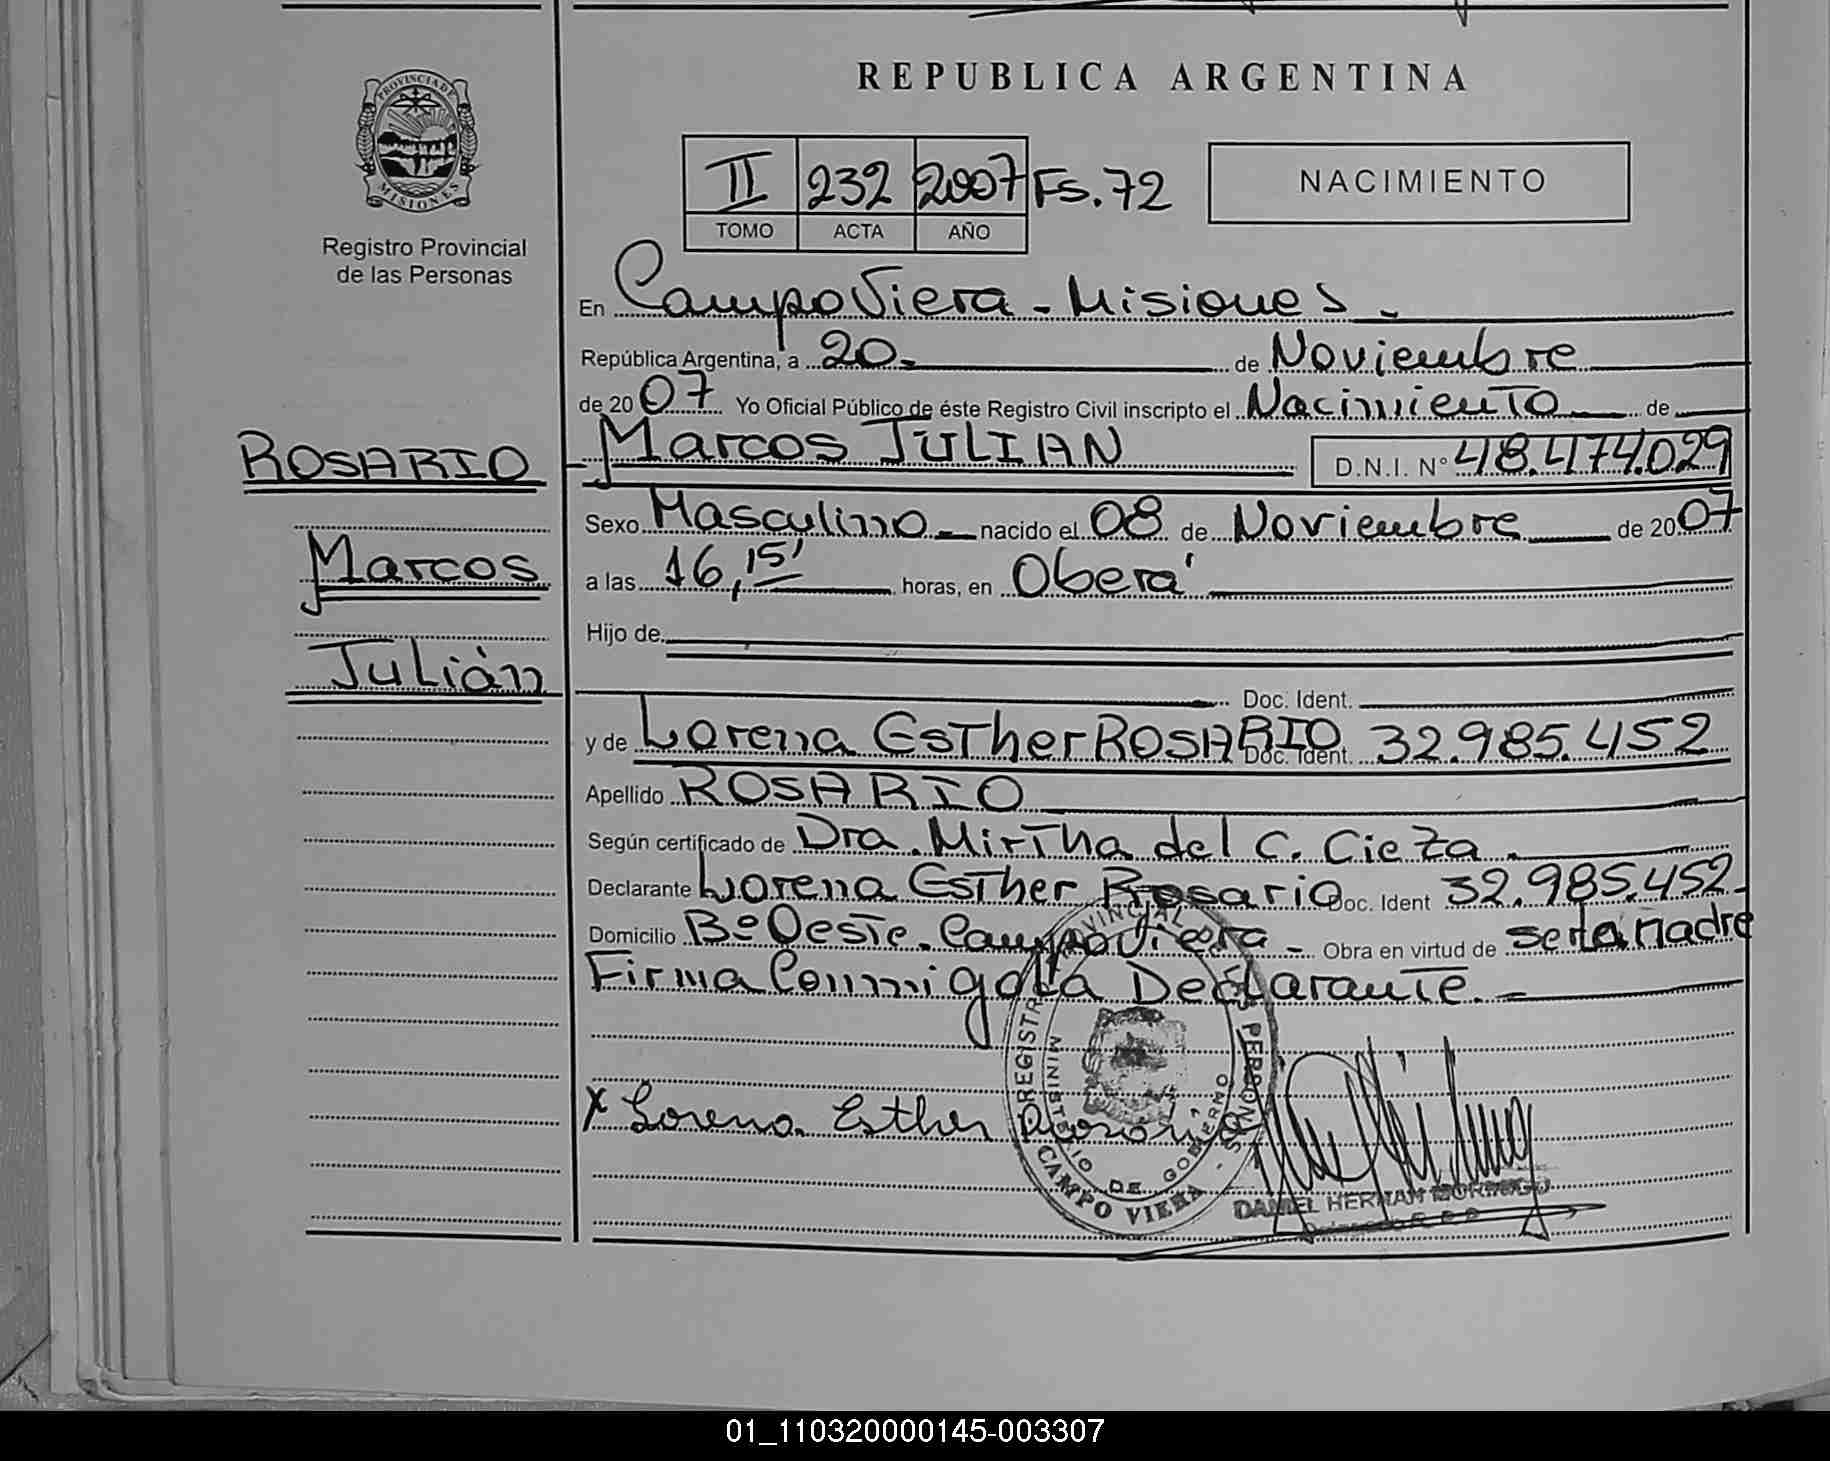 REPUBLICA ARGENTINA
PROVINCIA DE MISIONES
Registro Provincial
de las Personas
II 232 2007 Fs. 72
TOMO ACTA AÑO
NACIMIENTO
En Campo Viera - Misiones -
República Argentina, a 20 - de Noviembre
de 2007 Yo Oficial Público de éste Registro Civil inscripto el Nacimiento de
ROSARIO
Marcos JULIAN D.N.I. N° 48.474.029
Sexo Masculino - nacido el 08 de Noviembre de 2007
Marcos
a las 16,15' horas, en Oberá
Hijo de
Julián
Doc. Ident.
y de Lorena EsTher ROSARIO Doc. Ident. 32.985.452
Apellido ROSARIO
Según certificado de Dra. MirTha del C. Cieza.
Declarante Lorena EsTher Rosario Doc. Ident 32.985.452-
Domicilio Bº Oeste. Campo Viera - Obra en virtud de ser la Madre
Firma Conmigo La Declarante. -
X Lorena Esther Rosario
REGISTRO PROVINCIAL DE LAS PERSONAS
MINISTERIO DE GOBIERNO
CAMPO VIERA
DANIEL HERNAN
01_110320000145-003307